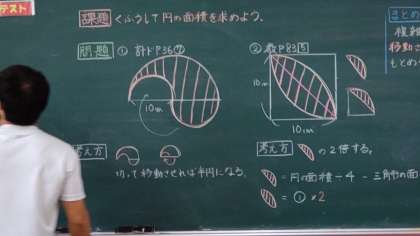 テスト
課題 くふうして円の面積を求めよう。
問題 ① 計ドP36⑦
10cm
② 教P83 5
10cm
10cm
考え方
切って移動させれば半円になる。
考え方 の2倍する。
= 円の面積÷4 - 三角形の面
= ① ×2
まとめ
複雑
移動さ
もとめ